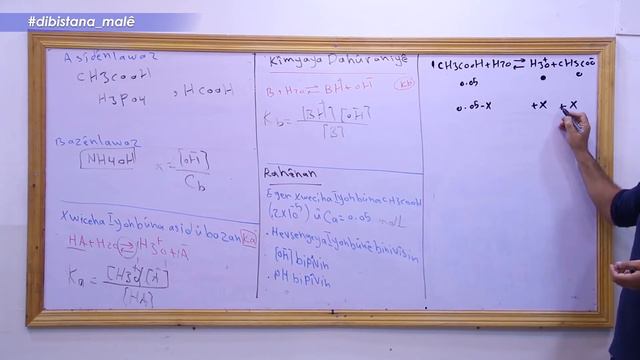 #dibistana_malê
Asîdên lawaz
CH3COOH
H3PO4 , HCOOH
Bazên lawaz
NH4OH
x = [OH⁻] / Cb
Xwiceha Îyonbûna asîd û bazan Ka
HA + H2O ⇌ H3O⁺ + A⁻
Ka = [H3O⁺] [A⁻] / [HA]
Kîmyaya Dahûraniyê
B + H2O ⇌ BH⁺ + OH⁻ Kb
Kb = [BH⁺] [OH⁻] / [B]
Rahênan
Eger xweciha Îyonbûna CH3COOH
(2×10⁻⁵) û Ca = 0.05 mol/L
. Hevsengaya Îyonbûnê binivîsin
. [OH⁻] bipîvin
. PH bipîvin
CH3COOH + H2O ⇌ H3O⁺ + CH3COO⁻
0.05 0 0
0.05-x +x +x